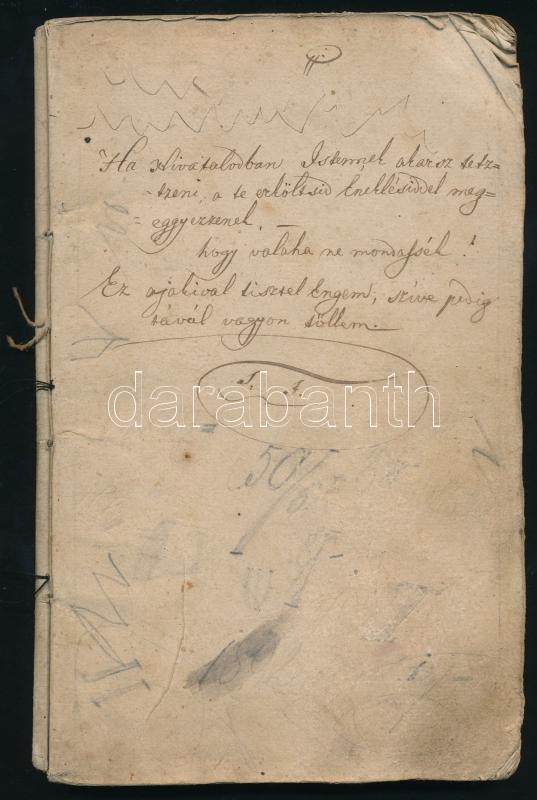 Ha Hivatalodban Istennek akarsz tetz=
-tzeni, a te erköltsid Éneklésiddel meg=
= eggyezzenek, —
hogy valaha ne mondassék !
Ez ajakival tisztel Engem, szíve pedig
távúl vagyon tőllem. —
S. J.
darabanth
50